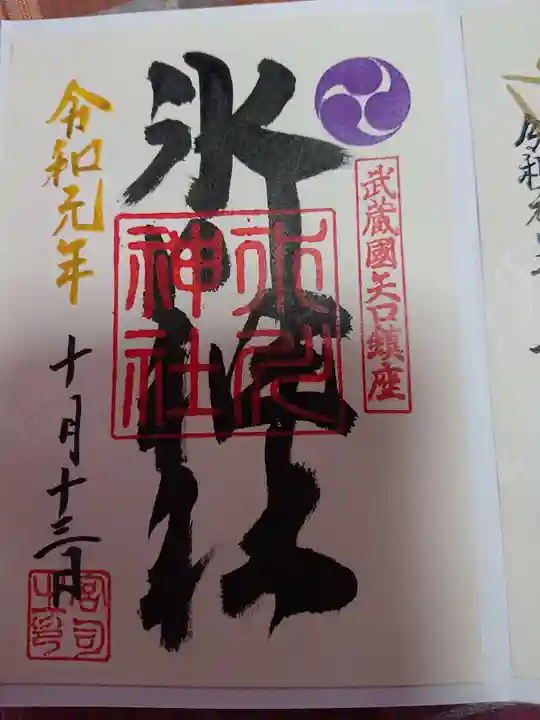 武蔵國矢口鎮座
氷川神社
氷川
神社
令和元年
十月十三日
宮司
之印